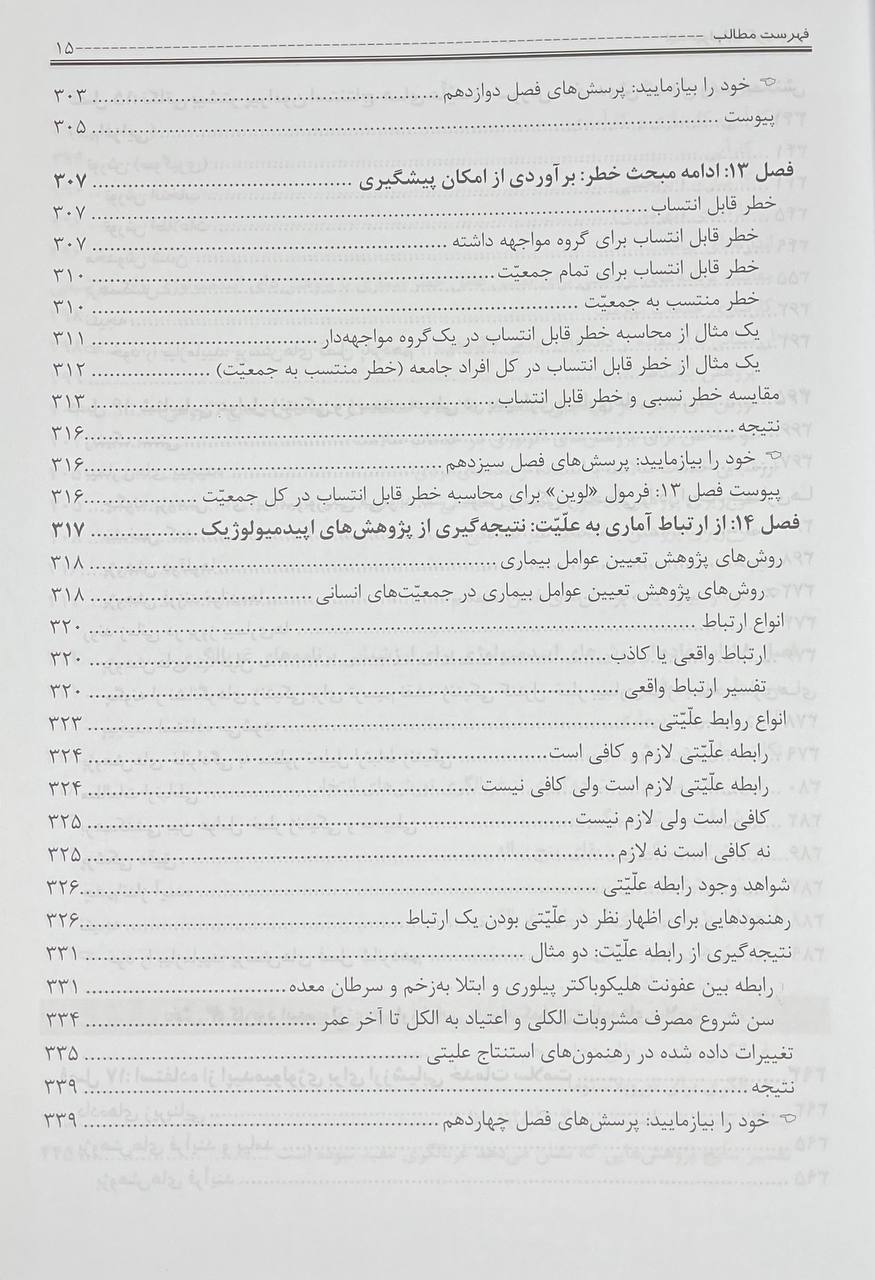 فهرست مطالب ---------- ۱۵
خود را بیازمایید: پرسش‌های فصل دوازدهم .......... ۳۰۳
پیوست .......... ۳۰۵
فصل ۱۳: ادامه مبحث خطر: برآوردی از امکان پیشگیری .......... ۳۰۷
خطر قابل انتساب .......... ۳۰۷
خطر قابل انتساب برای گروه مواجهه داشته .......... ۳۰۷
خطر قابل انتساب برای تمام جمعیّت .......... ۳۱۰
خطر منتسب به جمعیّت .......... ۳۱۰
یک مثال از محاسبه خطر قابل انتساب در یک‌گروه مواجهه‌دار .......... ۳۱۱
یک مثال از خطر قابل انتساب در کل افراد جامعه (خطر منتسب به جمعیّت) .......... ۳۱۲
مقایسه خطر نسبی و خطر قابل انتساب .......... ۳۱۳
نتیجه .......... ۳۱۶
خود را بیازمایید: پرسش‌های فصل سیزدهم .......... ۳۱۶
پیوست فصل ۱۳: فرمول «لوین» برای محاسبه خطر قابل انتساب در کل جمعیّت .......... ۳۱۶
فصل ۱۴: از ارتباط آماری به علیّت: نتیجه‌گیری از پژوهش‌های اپیدمیولوژیک .......... ۳۱۷
روش‌های پژوهش تعیین عوامل بیماری .......... ۳۱۸
روش‌های پژوهش تعیین عوامل بیماری در جمعیّت‌های انسانی .......... ۳۱۸
انواع ارتباط .......... ۳۲۰
ارتباط واقعی یا کاذب .......... ۳۲۰
تفسیر ارتباط واقعی .......... ۳۲۰
انواع روابط علیّتی .......... ۳۲۳
رابطه علیّتی لازم و کافی است .......... ۳۲۴
رابطه علیّتی لازم است ولی کافی نیست .......... ۳۲۴
کافی است ولی لازم نیست .......... ۳۲۵
نه کافی است نه لازم .......... ۳۲۵
شواهد وجود رابطه علیّتی .......... ۳۲۶
رهنمودهایی برای اظهار نظر در علیّتی بودن یک ارتباط .......... ۳۲۶
نتیجه‌گیری از رابطه علیّت: دو مثال .......... ۳۳۱
رابطه بین عفونت هلیکوباکتر پیلوری و ابتلا به‌زخم و سرطان معده .......... ۳۳۱
سن شروع مصرف مشروبات الکلی و اعتیاد به الکل تا آخر عمر .......... ۳۳۴
تغییرات داده شده در رهنمون‌های استنتاج علیتی .......... ۳۳۵
نتیجه .......... ۳۳۹
خود را بیازمایید: پرسش‌های فصل چهاردهم .......... ۳۳۹